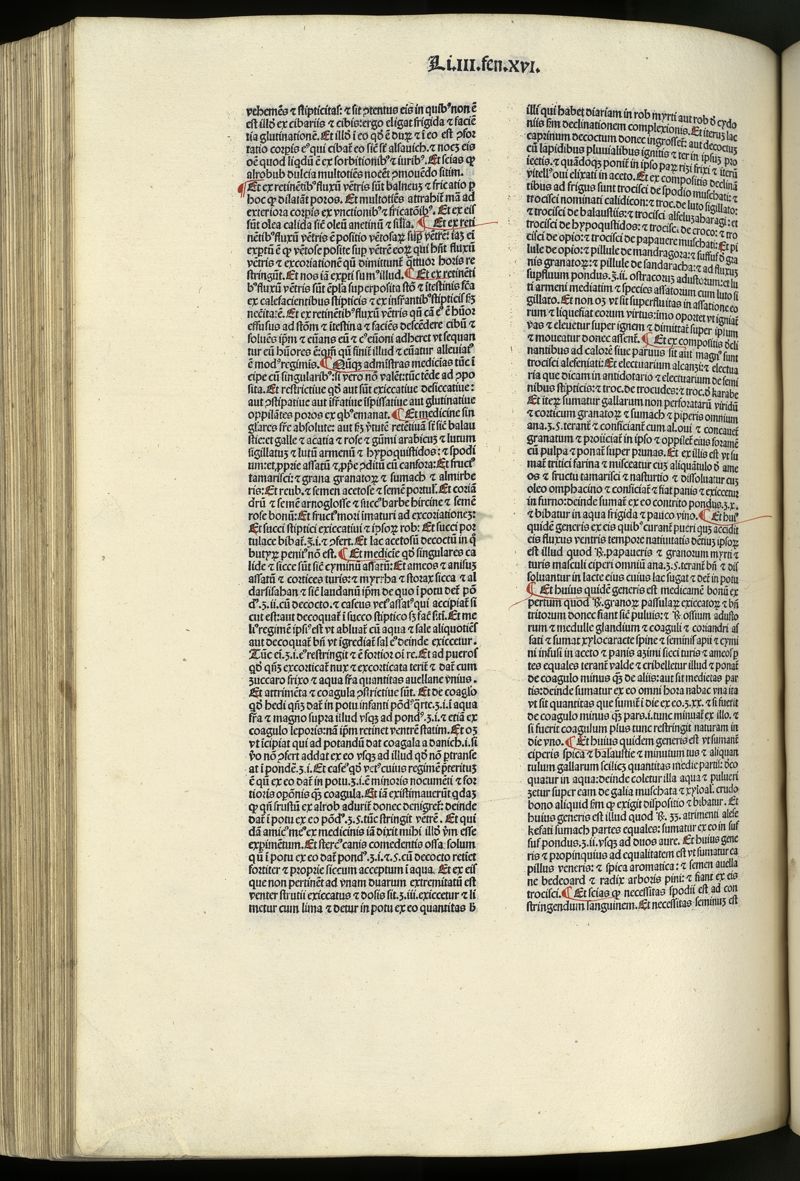 Li.III.fen.XVI.
vehemẽs ⁊ stipticitas: ⁊ sit ꝯtentus eis in quibꝰ non ē
est illd̓ ex cibariis ⁊ cibis: ergo eligat frigida ⁊ faciē
tia glutinationē. Et illd̓ ī eo qd̓ ē duꝝ ⁊ ī eo est ꝯfor
tatio corpis
oē quod liqdū ē ex sorbitionibꝰ ⁊ iuribꝰ. Et scias ꝙ
alrobub dulcia multotiēs nocēt ꝓmouēdo sitim.
Et ex retinētibꝰ fluxū vētris sūt balneuꝫ ⁊ fricatio ꝑ
hoc ꝙ dilatāt poros. Et multotiēs attrahūt mā ad
exteriora corpis ex vnctionibꝰ ⁊ fricatōibꝰ. Et ex eis
sūt olea calida sic̄ oleū anetinū ⁊ silia. Et ex reti
nētibꝰ fluxū vētris ē positio vētosaꝝ suꝑ vētrē: iaꝫ ei
exptū ē ꝙ vētose posite suꝑ vētrē eoꝝ qui hn̄t fluxū
vētris ⁊ excoriationē qn̄ dimittunt᷒ q̄ttuor horis re
stringūt. Et nos iā expti sumꝰ illud. Et ex retinēti
bꝰ fluxū vētris sūt ēpla superposita stō ⁊ ītestinis fēa
ex calefacientibus stipticis ⁊ ex infrigātibꝰ stipticis ẜꝫ
necitatē. Et ex retinētibꝰ fluxū vētris qn̄ cā eꝰ ē hūor
effusus ad stōm ⁊ ītestina ⁊ faciēs descēdere cibū ⁊
soluēs ipm̄ ⁊ eūans
tur eū hūores
ē modꝰ regimīs. Nūqꝫ admistras medicīas tūc ī
cipe cū singularibꝰ: si vero nō valēt: tūc tēde ad ꝯpo
sita. Et restrictiue qd̓ aut sūt exiccatiue desiccatiue:
aut ꝯstipatiue aut īfrātiue īspissatiue aut glutinatiue
oppilātes poros ex qbꝰ emanat. Et medicīe sin
glares
sticet galle ⁊ acatia ⁊ rose ⁊ gūmi arabicuꝫ ⁊ lutum
sigillatuꝫ ⁊ lutū armenū ⁊ hypoquistidos: ⁊ spodi
um: et ꝓprie assatū ⁊ ꝓpͥe ꝯditū cū canfora: Et fructꝰ
tamarisci: ⁊ grana granatoꝝ ⁊ sumach ⁊ almirbe
ris: Et reub. ⁊ semen acetose ⁊ semē portul. Et coriā
drū ⁊ semē arnoglosse ⁊ succꝰ barbe hircine ⁊ semē
rose bonū: Et fructꝰ mori īmaturi ad excoriationeꝫ:
Et succi stiptici exiccatiui ⁊ ipsoꝝ rob: Et succi por
tulace bibat᷒.ʒ.i.⁊ ꝯfert. Et lac acetosū decoctū in q̊
butyꝝ penitꝰ nō est. Et medicīe qd̓ singulares ca
lide ⁊ sicce sūt sic̄ cyminū assatū: Et ameos ⁊ anisuꝫ
assatū ⁊ cortices turis: ⁊ myrrha ⁊ storax sicca ⁊ al
darsisahan ⁊ sic̄ laudanū ipm̄ de quo ī potu det᷒ pō
dꝰ.ʒ.ii.cū decocto. ⁊ caseus vetꝰ assatꝰ qui accipiat᷒ si
cut est: aut decoquat᷒ ī succo stiptico
liꝰ regimē ipsiꝰ est vt abluat᷒ cū aqua ⁊ sale aliquotiēs
aut decoquat᷒ bn̄ vt īgrediat᷒ sal eꝰ deinde exiccetur.
Tūc ei.ʒ.i.eꝰ restringit ⁊ ē fortior oī re. Et ad pueros
qd̓ qn̄ excorticat᷒ nux ⁊ excorticata terit᷒ ⁊ dat᷒ cum
zuccaro frixo ⁊ aqua frīa quantitas auellane vnius.
Et attrimēta ⁊ coagula ꝯstrictiue sūt. Et de coaglo
qd̓ hedi qn̄ dat᷒ in potu infanti pōdꝰ q̄rte.ʒ.i.ī aqua
frīa ⁊ magno supra illud vsqꝫ ad pondꝰ.ʒ.i. ⁊ etiā ex
coagulo leporis: nā ipm̄ retinet ventrē statim. Et oꝫ
vt īcipiat᷒ qui ad potandū dat coagula a danich.i. si
v̊o nō ꝯfert addat᷒ ex eo vsqꝫ ad illud qd̓ nō ptranse
at ī pondē.ʒ.i. Et caseꝰ qd̓ vetꝰ cuius regimē p̄teritum
ē qn̄ ex eo dat᷒ in potu.ʒ.i.ē minoris nocumēti ⁊ for
tioris opōnis qꝫ coagula. Et iā existimauerūt qdaꝫ
ꝙ qn̄ frustū ex alrob adurit᷒ donec denigret᷒: deinde
dat᷒ ī potu ex eo pōdꝰ.ʒ.s.tūc stringit vētrē. Et qui
dā amicꝰ meꝰ ex medicinis iā dixit mihi illd̓ ym̄ esse
expimētum. Et stercꝰ canis comedentis ossa solum
qn̄ ī potu ex eo dat᷒ pondꝰ.ʒ.i.⁊.s.cū decocto retiet
fortiter ⁊ proprie siccum acceptum ī aqua. Et ex eis
que non pertinēt ad vnam duarum extremitatū est
venter strutii exiccatus ⁊ dosis sit.ʒ.iii.exiccetur ⁊ li
metur cum lima ⁊ detur in potu ex eo quantitas ꝑ
illi qui habet diariam in rob myrti aut rob d̓ cydo
niis ẜm declinationem complexionis. Et iterūꝫ lac
caprinum decoctum donec ingrosset᷒: aut decoctuꝫ
cū lapidibus pluuialibus ignitis ⁊ ter in ipsuꝫ pro
iectis. ⁊ quādoqꝫ ponit᷒ in ipso paꝝ rizi frixi ⁊ iterū
vitellꝰ oui elixati in aceto. Et ex compositis declinā
tibus ad frigus sunt trocisci de spodio muschati: ⁊
trocisci nominati calidicon: ⁊ troc.de luto sigillato:
⁊ trocisci de balaustiis: ⁊ trocisci alseluꝫabaragi: et
trocisci de hypoquistidos: ⁊ trocisc.de croco: ⁊ tro
cisci de opio: ⁊ trocisci de papauere muschati: Et pi
lule de opio: ⁊ pillule de mandragora: ⁊ suffuf d̓ gra
nis granatoꝝ: ⁊ pillule de sandaracha: ⁊ ad fluxuꝫ
supfluum pondus.ʒ.ii.ostracoruꝫ adustorum: et lu
ti armeni mediatim ⁊ species assatorum cum luto si
gillato. Et non oꝫ vt sit superfluitas in assatione eo
rum ⁊ liquefiat eorum virtus: imo oportet vt igniat᷒
vas ⁊ eleuetur super ignem ⁊ dimittat᷒ super ipsum
⁊ moueatur donec assent᷒. Et ex compositis d̓cli
nantibus ad calorē siue paruus sit aut magnꝰ sunt
trocisci alefeniati: Et electuarium alcanzi: ⁊ electua
ria que dicam in antidotario ⁊ electuarium de semi
nibus stipticis: ⁊ troc.de trocudes: ⁊ troc.d̓ karabe
Et iteꝝ sumatur gallarum non perforatarū viridū
⁊ corticum granatoꝝ ⁊ sumach ⁊ piperis omnium
ana.ʒ.s.terant᷒ ⁊ conficiant᷒ cum al.oui ⁊ concauet᷒
granatum ⁊ proiiciat᷒ in ipso ⁊ oppilet᷒ eius foramē
cū pulpa ⁊ ponat᷒ super prunas. Et ex illis est vt su
mat᷒ tritici farina ⁊ misceatur cuꝫ aliquātulo d̓ ame
os ⁊ fructu tamarisci ⁊ nasturtio ⁊ dissoluatur cuꝫ
oleo omphacino ⁊ conficiat᷒ ⁊ fiat panis ⁊ exiccetur
in furno: deinde sumat᷒ ex eo contrito pondus.ʒ.x.
⁊ bibatur in aqua frigida ⁊ pauco vino. Et huiꝰ
quidē generis ex eis quibꝰ curant᷒ pueri quꝫ accidit
eis fluxus ventris tempore natiuitatis dentiū ipsoꝝ
est illud quod ℞.papaueris ⁊ granorum myrti ⁊
turis masculi ciperi omniū ana.ʒ.s.terant᷒ bn̄ ⁊ dis
soluantur in lacte eius cuius lac sugat ⁊ det᷒ in potu
Et huius quidē generis est medicamē bonū ex
pertum quod ℞.granoꝝ passulaꝝ exiccatoꝝ ⁊ bn̄
tritorum donec fiant sic̄ puluis: ⁊ ℞ ossium adusto
rum ⁊ medulle glandium ⁊ coaguli ⁊ coriandri as
sati ⁊ sumaꝝ xylocaracte spine ⁊ seminis apii ⁊ cymi
ni infusi in aceto ⁊ panis azimi sicci turis ⁊ ameos par
tes equales terant᷒ valde ⁊ cribelletur illud ⁊ ponat᷒
de coagulo minus qꝫ de aliis: aut sit medietas par
tis: deinde sumatur ex eo omni hora nabac vna ita
vt sit quantitas que sumit᷒ ī die ex eo.ʒ.xx.⁊ si fuerit
de coagulo minus qꝫ pars.i.tunc minuat᷒ ex illo. ⁊
si fuerit coagulum plus tunc restringit naturam in
die vno. Et huius quidem generis est vt sumant᷒
ciperis spica ⁊ balaustie ⁊ minutum tus ⁊ aliquan
tulum gallarum scilicꝫ quantitas medie partis: deco
quatur in aqua: deinde coletur illa aqua ⁊ pulueri
zetur super eam de galia muschata ⁊ xyloal. crudo
bono aliquid ẜm ꝙ exigit dispositio ⁊ bibatur. Et
huius generis est illud quod ℞.ʒʒ.atrimenti alese
kefati sumach partes equales: sumatur ex eo in suf
suf pondus.ʒ.ii.vsqꝫ ad duos aure. Et huius gene
ris ⁊ propinquius ad equalitatem est vt sumatur ca
pillus veneris: ⁊ spica aromatica: ⁊ semen auella
ne bedeoard ⁊ radix arboris pini: ⁊ fiant ex eis
trocisci. Et scias ꝙ necessitas spodii est ad con
stringendum sanguinem. Et necessitas seminuꝫ est